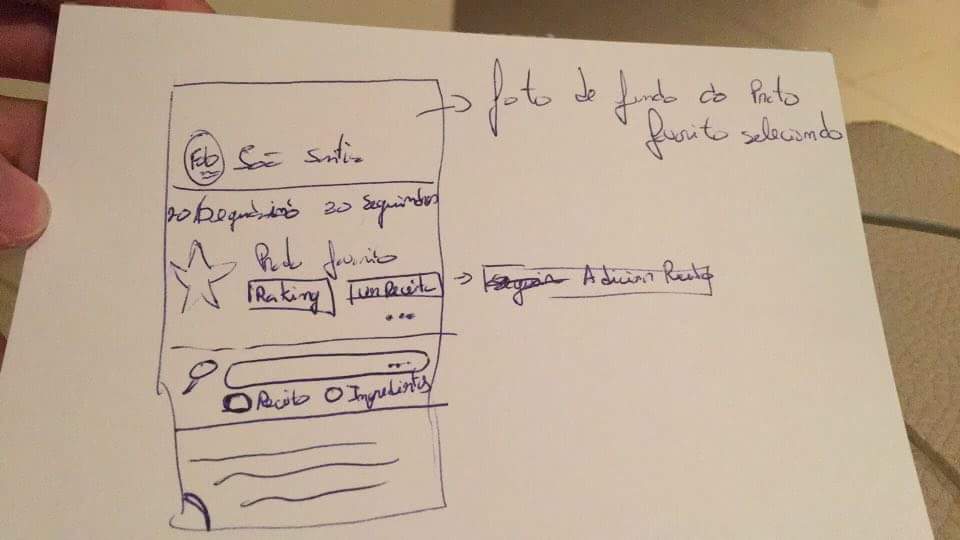 foto de fundo do Prato
favorito selecionado
Fob
20 Seguidores 20 Seguindores
Prato favorito
Ranking
Receita
Adicion Receita
Receita Ingredientes